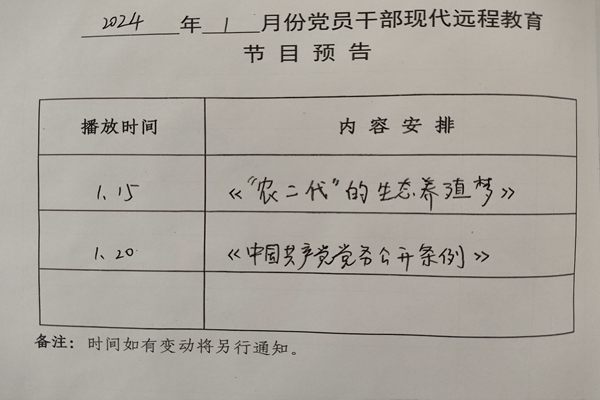 2024 年 1 月份党员干部现代远程教育
节目预告
播放时间 内容安排
1.15 《“农二代”的生态养殖梦》
1.20 《中国共产党党务公开条例》
备注：时间如有变动将另行通知。